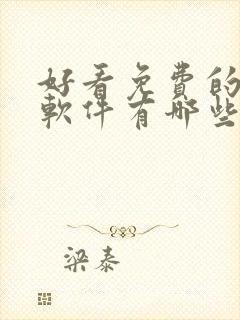 好看免費的
軟件有哪些
梁泰